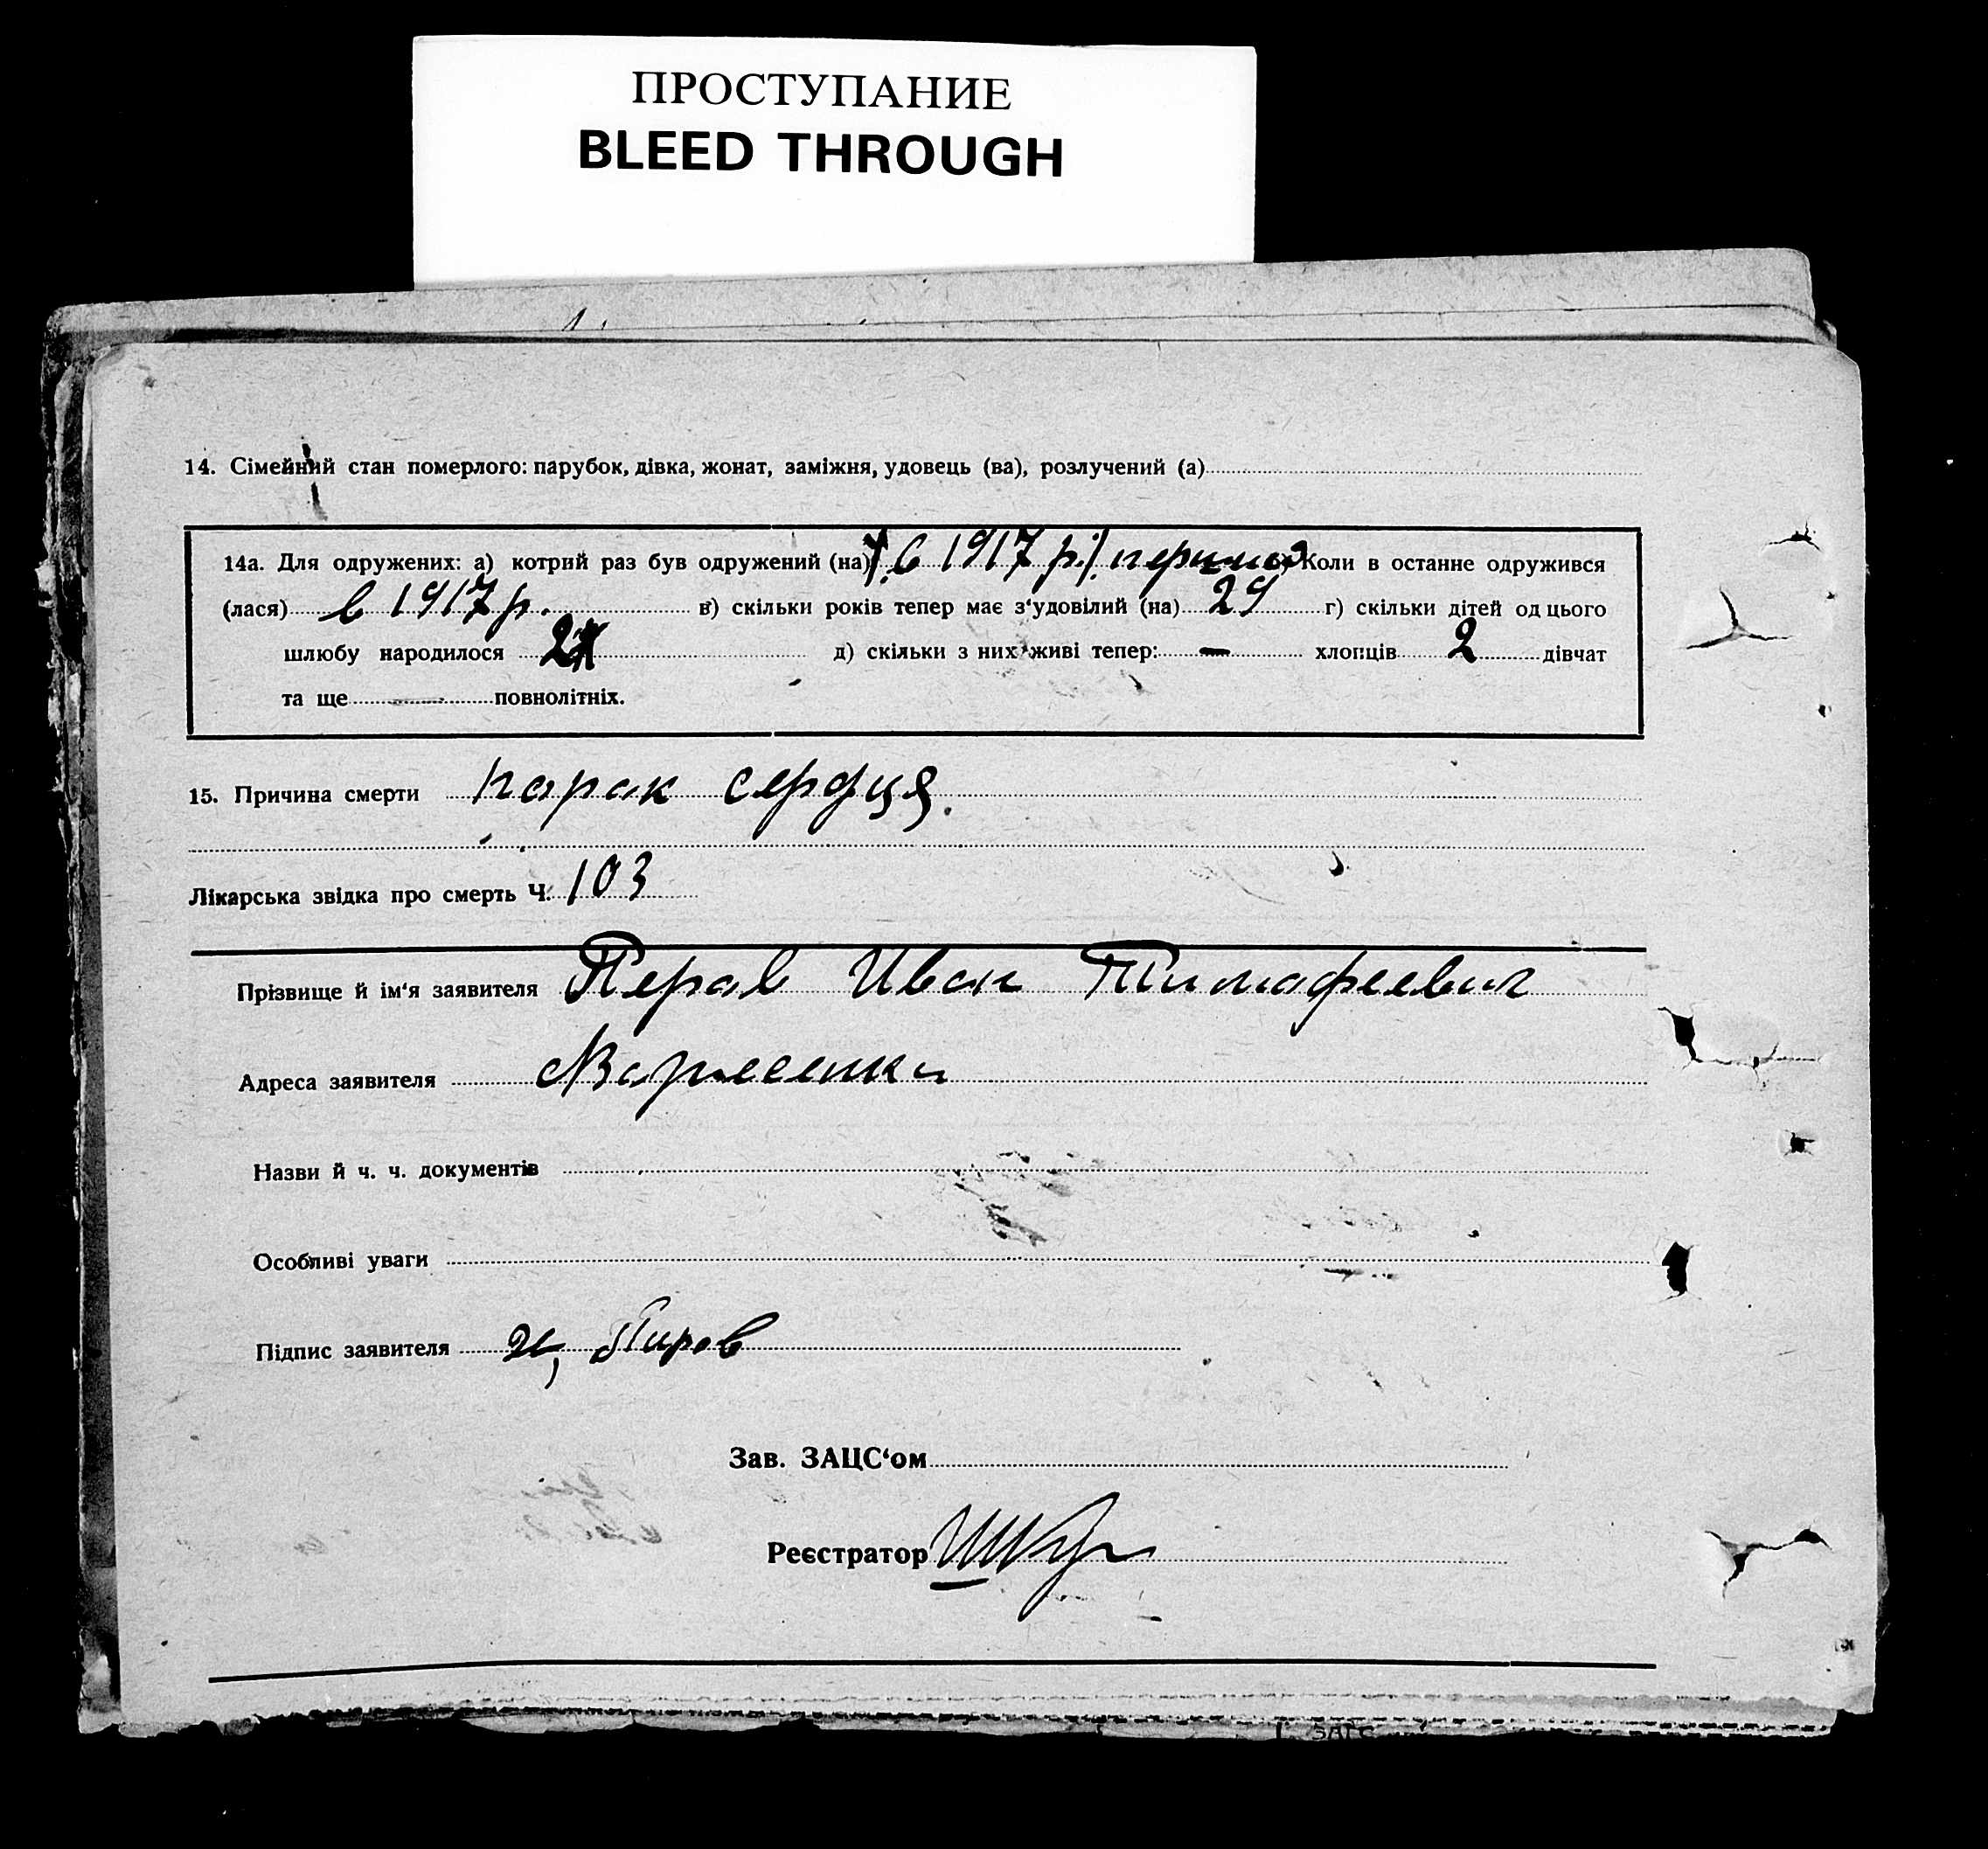 ПРОСТУПАНИЕ
BLEED THROUGH
14. Сімейний стан померлого: парубок, дівка, жонат, заміжня, удовець (ва), розлучений (а)
14а. Для одружених: а) котрий раз був одружений (на) /в 1917 р/. перший Коли в останне одружився
(лася) в 1917 р. в) скільки років тепер має з‘удовілий (на) 29 г) скільки дітей од цього
шлюбу народилося 2 д) скільки з них живі тепер: — хлопців 2 дівчат
та ще — повнолітніх.
15. Причина смерти порок сердця.
Лікарська звідка про смерть Ч. 103
Прізвище й ім‘я заявителя Перов Иван Тимофеевич
Адреса заявителя
Назви й ч. ч. документів
Особливі уваги
Підпис заявителя И, Пиров
Зав. ЗАЦС‘ом
Реєстратор
ЗАГС